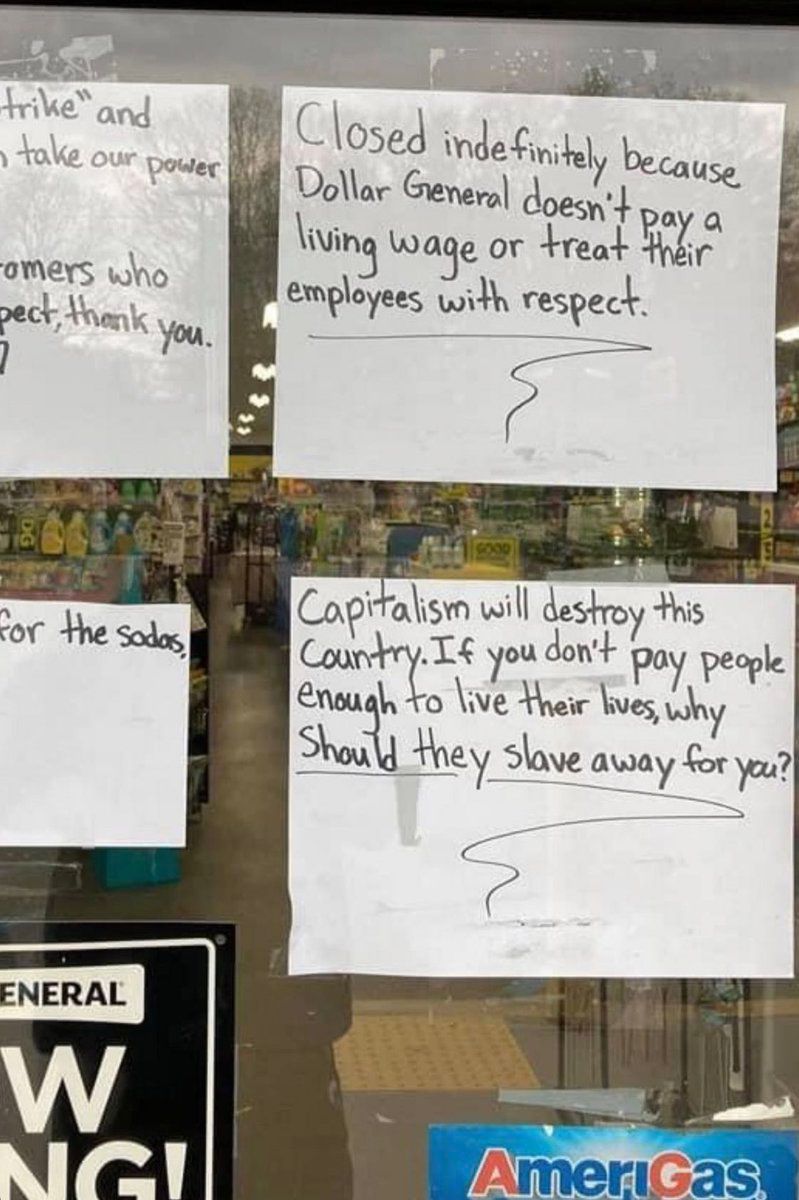 trike" and
take our power
omers who
pect, thank you.
Closed indefinitely because
Dollar General doesn't pay a
living wage or treat their
employees with respect.
for the sodas,
Capitalism will destroy this
Country. If you don't pay people
enough to live their lives, why
Should they slave away for you?
DG
GOOD
ENERAL
W
NG!
AmeriGas